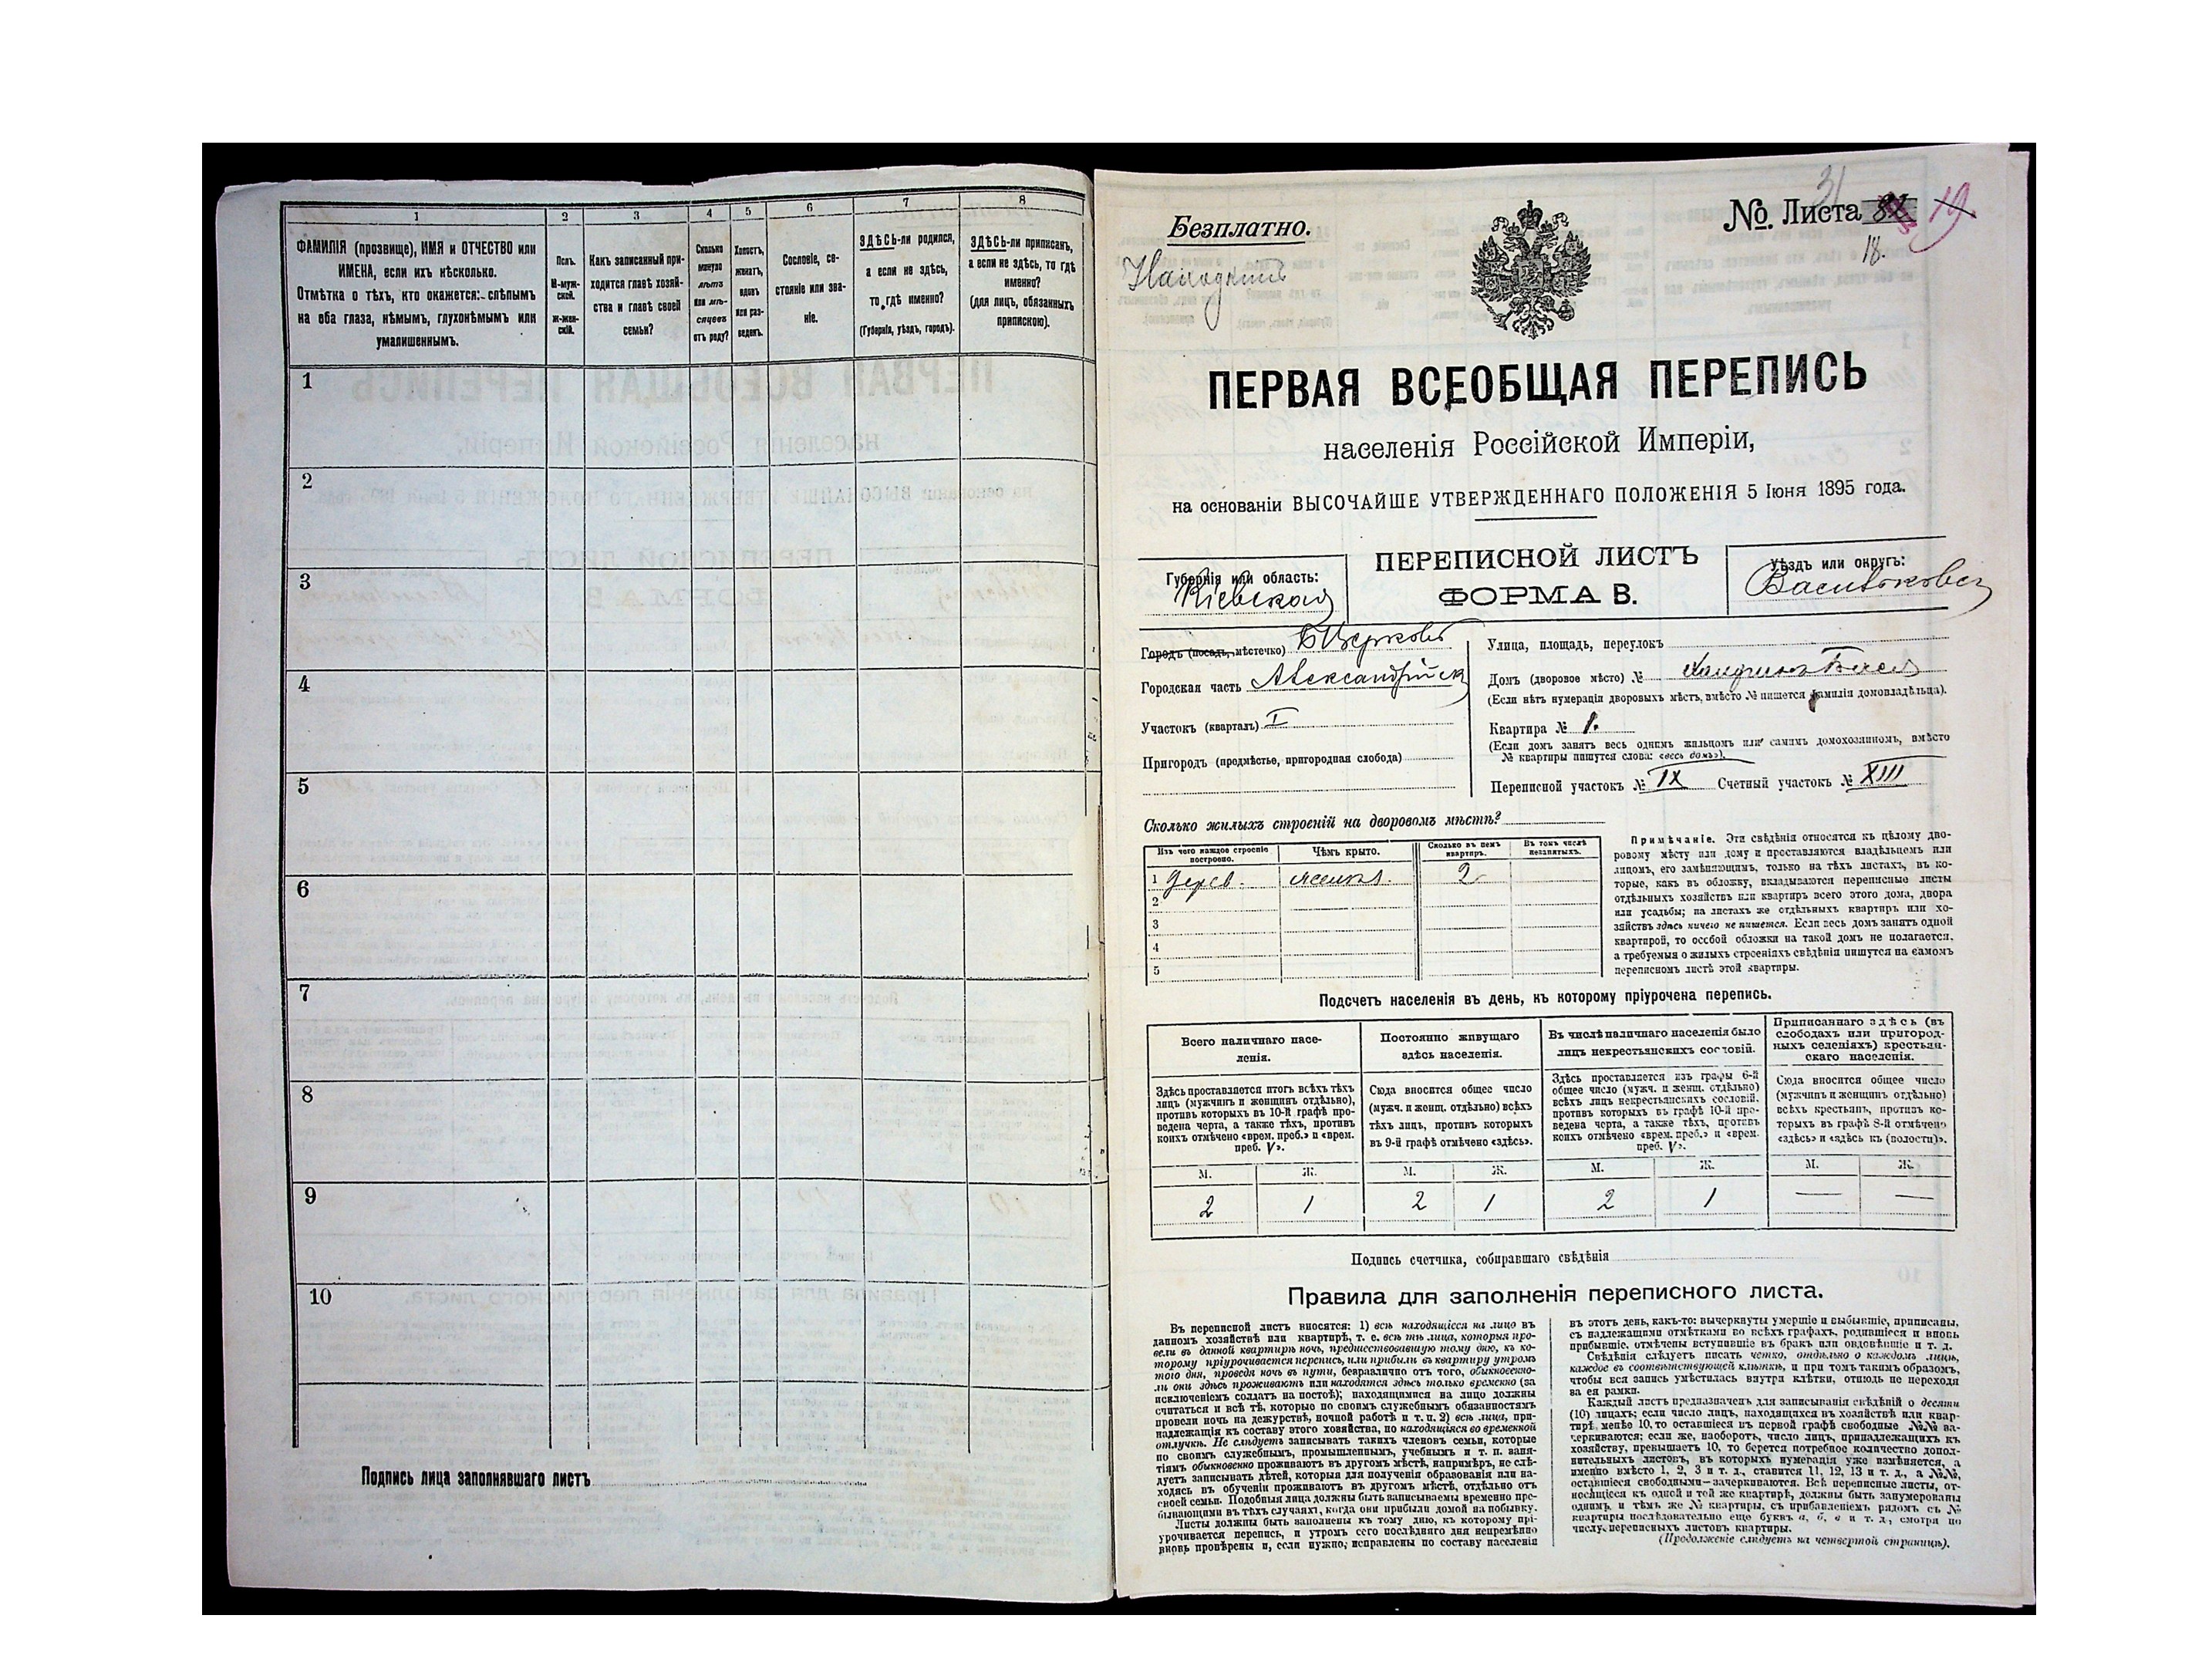 1 2 3 4 5 6 7 8
ФАМИЛІЯ (прозвище), ИМЯ и ОТЧЕСТВО или
ИМЕНА, если ихъ нѣсколько.
Отмѣтка о тѣхъ, кто окажется: слѣпымъ
на оба глаза, нѣмымъ, глухонѣмымъ или
умалишеннымъ.
Полъ.
М-муж-
ской.
Ж-жен-
скій.
Какъ записанный при-
ходится главѣ хозяй-
ства и главѣ своей
семьи?
Сколько
минуло
лѣтъ
или мѣ-
сяцевъ
отъ роду?
Холостъ,
женатъ,
вдовъ
или раз-
веденъ.
Сословіе, со-
стояніе или зва-
ніе.
ЗДѢСЬ-ли родился,
а если не здѣсь,
то гдѣ именно?
(Губернія, уѣздъ, городъ).
ЗДѢСЬ-ли приписанъ,
а если не здѣсь, то гдѣ
именно?
(для лицъ, обязанныхъ
припискою).
1
2
3
4
5
6
7
8
9
10
Подпись лица заполнявшаго листъ
31
Безплатно.
№. Листа 19.
18.
ПЕРВАЯ ВСЕОБЩАЯ ПЕРЕПИСЬ
населенія Россійской Имперіи,
на основаніи ВЫСОЧАЙШЕ УТВЕРЖДЕННАГО ПОЛОЖЕНІЯ 5 Іюня 1895 года.
Губернія или область:
Кіевская
ПЕРЕПИСНОЙ ЛИСТЪ
ФОРМА В.
Уѣздъ или округъ:
Васильковск
Городъ (посадъ, мѣстечко) Б Церковь
Городская часть Александрійск
Участокъ (кварталъ) I
Пригородъ (предмѣстье, пригородная слобода)
Улица, площадь, переулокъ
Домъ (дворовое мѣсто) №
(Если нѣтъ нумераціи дворовыхъ мѣстъ, вмѣсто № пишется фамилія домовладѣльца).
Квартира № 1.
(Если домъ занятъ весь однимъ жильцомъ или самимъ домохозяиномъ, вмѣсто
№ квартиры пишутся слова: «весь домъ»).
Переписной участокъ № IX Счетный участокъ № XIII
Сколько жилыхъ строеній на дворовомъ мѣстѣ?
Изъ чего каждое строеніе
построено.
Чѣмъ крыто.
Сколько въ немъ
квартиръ.
Въ томъ числѣ
незанятыхъ.
1 дерев. 2
2
3
4
5
Примѣчаніе. Эти свѣдѣнія относятся къ цѣлому дво-
ровому мѣсту или дому и проставляются владѣльцемъ или
лицомъ, его замѣняющимъ, только на тѣхъ листахъ, въ ко-
торые, какъ въ обложку, вкладываются переписные листы
отдѣльныхъ хозяйствъ или квартиръ всего этого дома, двора
или усадьбы; на листахъ же отдѣльныхъ квартиръ или хо-
зяйствъ здѣсь ничего не пишется. Если весь домъ занятъ одной
квартирой, то особой обложки на такой домъ не полагается,
а требуемыя о жилыхъ строеніяхъ свѣдѣнія пишутся на самомъ
переписномъ листѣ этой квартиры.
Подсчетъ населенія въ день, къ которому пріурочена перепись.
Всего наличнаго насе-
ленія.
Постоянно живущаго
здѣсь населенія.
Въ числѣ наличнаго населенія было
лицъ некрестьянскихъ сословій.
Приписаннаго здѣсь (въ
слободахъ или пригород-
ныхъ селеніяхъ) крестьян-
скаго населенія.
Здѣсь проставляется итогъ всѣхъ тѣхъ
лицъ (мужчинъ и женщинъ отдѣльно),
противъ которыхъ въ 10-й графѣ про-
ведена черта, а также тѣхъ, противъ
коихъ отмѣчено «врем. преб.» и «врем.
преб. V».
Сюда вносится общее число
(мужч. и женщ. отдѣльно) всѣхъ
тѣхъ лицъ, противъ которыхъ
въ 9-й графѣ отмѣчено «здѣсь».
Здѣсь проставляется изъ графы 6-й
общее число (мужч. и женщ. отдѣльно)
всѣхъ лицъ некрестьянскихъ сословій,
противъ которыхъ въ графѣ 10-й про-
ведена черта, а также тѣхъ, противъ
коихъ отмѣчено «врем. преб.» и «врем.
преб. V».
Сюда вносится общее число
(мужчинъ и женщинъ отдѣльно)
всѣхъ крестьянъ, противъ ко-
торыхъ въ графѣ 8-й отмѣчено
«здѣсь» и «здѣсь къ (волости)».
М. Ж. М. Ж. М. Ж. М. Ж.
2 1 2 1 2 1 — —
Подпись счетчика, собиравшаго свѣдѣнія
Правила для заполненія переписного листа.
Въ переписной листъ вносятся: 1) всѣ находящіеся на лицо въ
данномъ хозяйствѣ или квартирѣ, т. е. всѣ тѣ лица, которыя про-
вели въ данной квартирѣ ночь, предшествовавшую тому дню, къ ко-
торому пріурочивается перепись, или прибыли въ квартиру утромъ
того дня, проведя ночь въ пути, безразлично отъ того, обыкновенно-
ли они здѣсь проживаютъ или находятся здѣсь только временно (за
исключеніемъ солдатъ на постоѣ); находящимися на лицо должны
считаться и всѣ тѣ, которые по своимъ служебнымъ обязанностямъ
провели ночь на дежурствѣ, ночной работѣ и т. п. 2) всѣ лица, при-
надлежащія къ составу этого хозяйства, но находящіяся во временной
отлучкѣ. Не слѣдуетъ записывать такихъ членовъ семьи, которые
по своимъ служебнымъ, промышленнымъ, учебнымъ и т. п. заня-
тіямъ обыкновенно проживаютъ въ другомъ мѣстѣ, напримѣръ, не слѣ-
дуетъ записывать дѣтей, которыя для полученія образованія или на-
ходясь въ обученіи проживаютъ въ другомъ мѣстѣ, отдѣльно отъ
своей семьи. Подобныя лица должны быть записываемы временно пре-
бывающими въ тѣхъ случаяхъ, когда они прибыли домой на побывку.
Листы должны быть заполнены къ тому дню, къ которому прі-
урочивается перепись, и утромъ сего послѣдняго дня непремѣнно
вновь провѣрены и, если нужно, исправлены по составу населенія
въ этотъ день, какъ-то: вычеркнуты умершіе и выбывшіе, приписаны,
съ надлежащими отмѣтками во всѣхъ графахъ, родившіеся и вновь
прибывшіе, отмѣчены вступившіе въ бракъ или овдовѣвшіе и т. д.
Свѣдѣнія слѣдуетъ писать четко, отдѣльно о каждомъ лицѣ,
каждое въ соотвѣтствующей клѣткѣ, и при томъ такимъ образомъ,
чтобы вся запись умѣстилась внутри клѣтки, отнюдь не переходя
за ея рамки.
Каждый листъ предназначенъ для записыванія свѣдѣній о десяти
(10) лицахъ; если число лицъ, находящихся въ хозяйствѣ или квар-
тирѣ, менѣе 10, то оставшіеся въ первой графѣ свободные №№ за-
черкиваются; если же, наоборотъ, число лицъ, принадлежащихъ къ
хозяйству, превышаетъ 10, то берется потребное количество допол-
нительныхъ листовъ, въ которыхъ нумерація уже измѣняется, а
именно вмѣсто 1, 2, 3 и т. д., ставится 11, 12, 13 и т. д., а №№,
оставшіеся свободными—зачеркиваются. Всѣ переписные листы, от-
носящіеся къ одной и той же квартирѣ, должны быть занумерованы
однимъ и тѣмъ же № квартиры, съ прибавленіемъ рядомъ съ №
квартиры послѣдовательно еще буквъ а, б, в и т. д., смотря по
числу переписныхъ листовъ квартиры.
(Продолженіе слѣдуетъ на четвертой страницѣ).